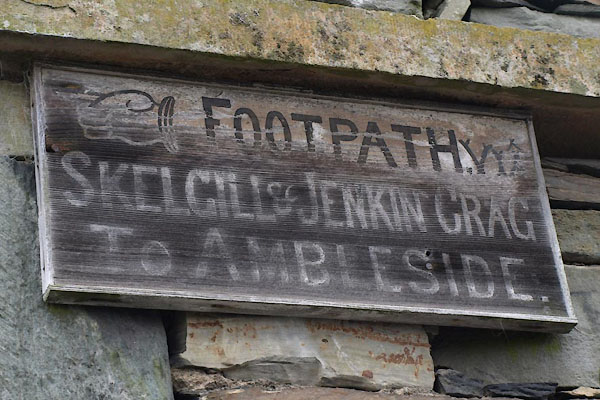 FOOTPATH VIA
SKELGILL & JENKIN CRAG
TO AMBLESIDE.